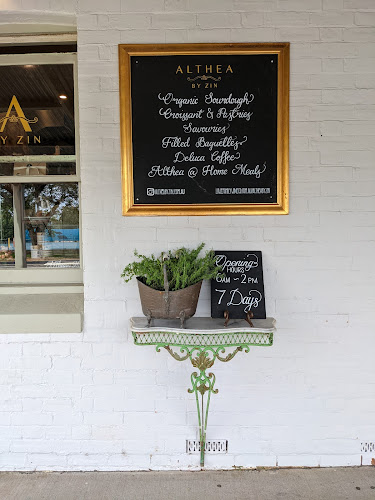 ALTHEA
BY ZIN
Organic Sourdough
Croissant & Pastries
Savouries
Filled Baguettes
Deluca Coffee
Althea @ Home Meals
A
BY ZIN
Opening
HOURS
6AM - 2PM
7 Days